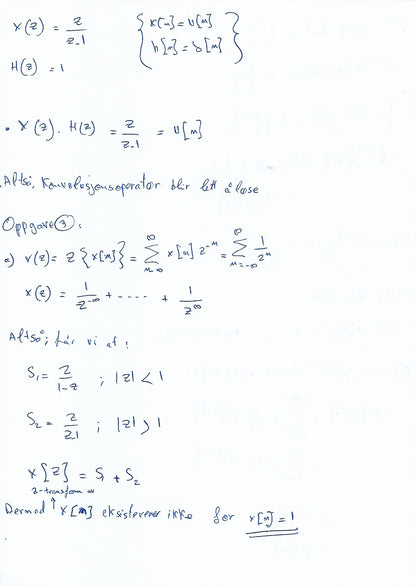 X(z) = z/z-1 { x[n] = u[n]
H(z) = 1 h[n] = δ[n] }
• X(z) · H(z) = z/z-1 = u[n]
Altså, Konvolusjonsoperatør blir lett å løse
Oppgave ③:
a) X(z) = Z{x[n]} = ∞Σn=-∞ x[n] z^-n = ∞Σn=-∞ 1/z^n
X(z) = 1/z^-∞ + ..... + 1/z^∞
Altså, får vi at:
S₁ = z/1-z ; |z| < 1
S₂ = z/z-1 ; |z| > 1
X[z] = S₁ + S₂
z-transform av
Dermed ↑ x[n] eksisterer ikke for x[n] = 1